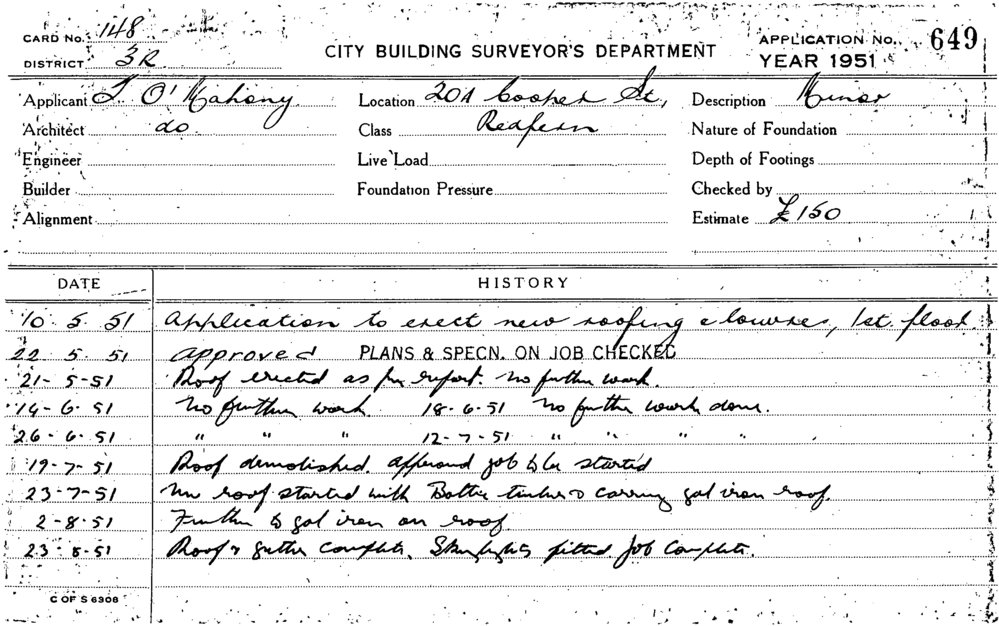 CARD No. 148
DISTRICT 3R
CITY BUILDING SURVEYOR'S DEPARTMENT
APPLICATION No. 649
YEAR 1951
Applicant J. O'Mahony
Location 20A Cooper St,
Description Minor
Architect do
Class Redfern
Nature of Foundation
Engineer
Live Load
Depth of Footings
Builder
Foundation Pressure
Checked by
Alignment
Estimate £150
DATE HISTORY
10. 5. 51 Application to erect new roofing & louvres, 1st. floor.
22. 5. 51 approved PLANS & SPECN. ON JOB CHECKED
21-5-51 Roof erected as per report. No further work.
14-6-51 No further work 18-6-51 No further work done.
26-6-51 " " " 12-7-51 " " " "
19-7-51 Roof demolished. approved job to be started
23-7-51 roof started with timber & carrying gal iron roof.
2-8-51 Further to gal iron on roof.
23-8-51 Roof & gutter complete. Skylights fitted Job Complete.
C OF S 6306